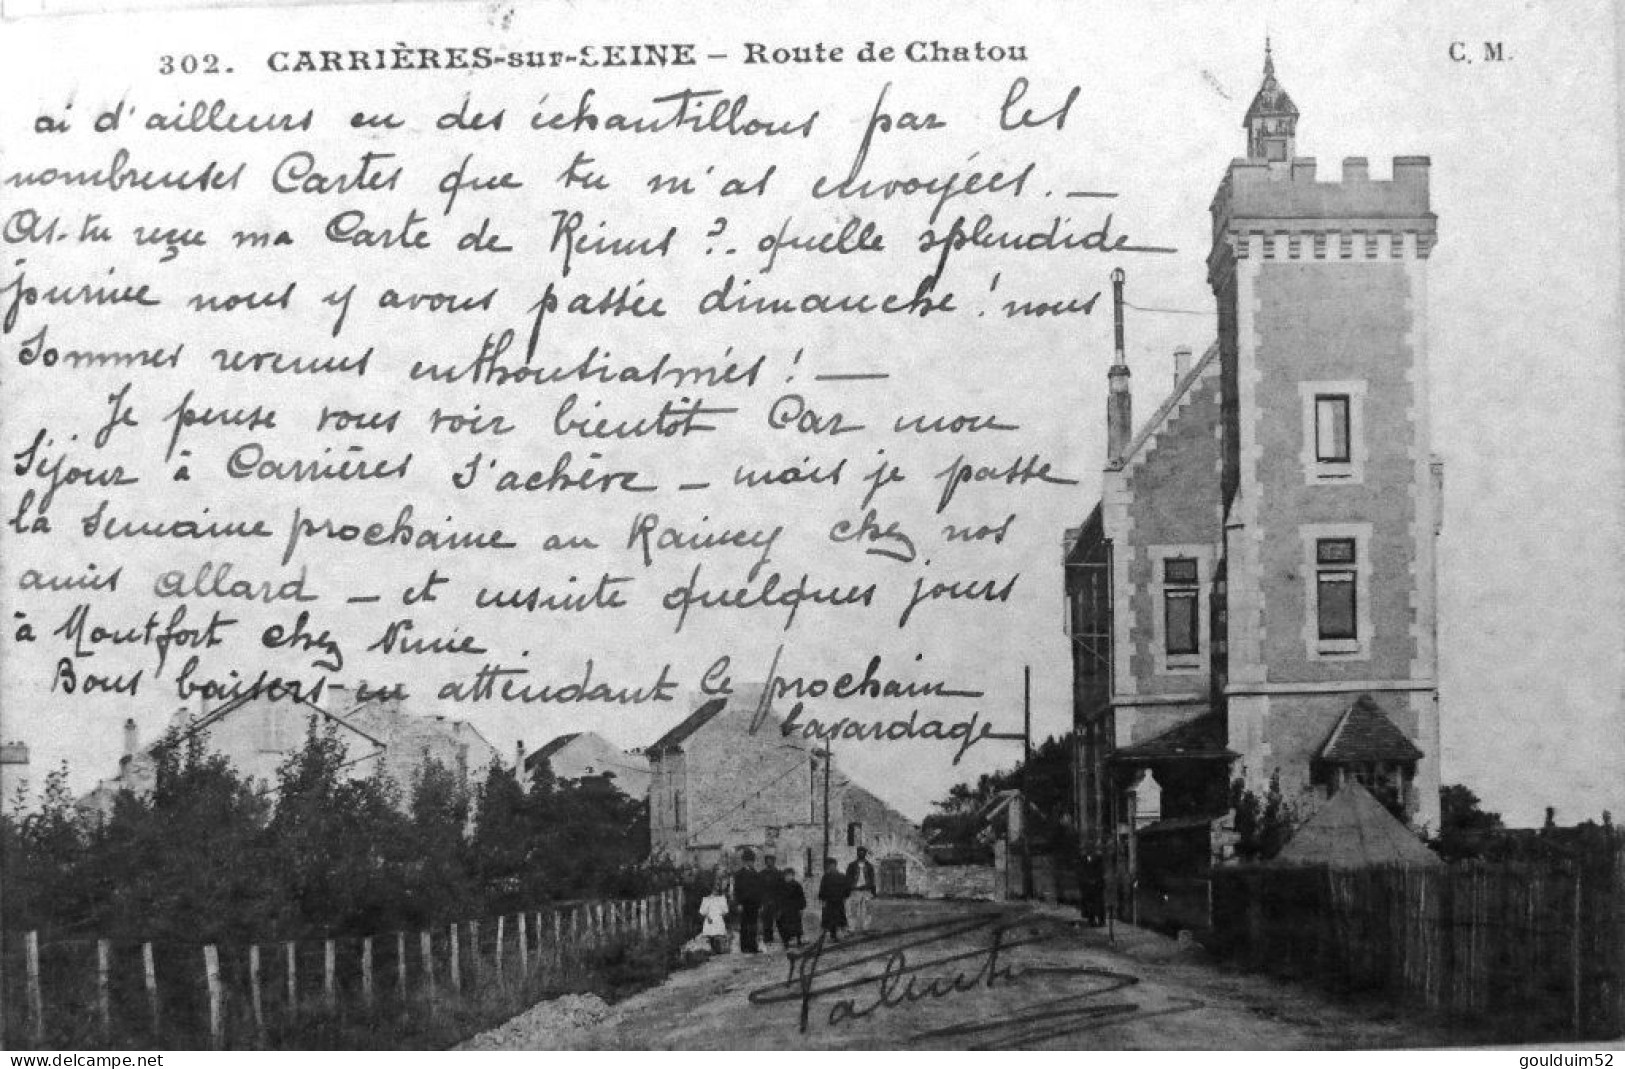 302. CARRIÈRES-sur-SEINE – Route de Chatou
C. M.
ai d'ailleurs eu des échantillons par les
nombreuses Cartes que tu m'as envoyées. —
As-tu reçu ma Carte de Reims ?. quelle splendide
journée nous y avons passée dimanche ! nous
sommes revenus enthousiasmés ! —
Je pense vous voir bientôt Car mon
séjour à Carrières s'achève – mais je passe
la semaine prochaine au Raincy chez nos
amis Allard – et ensuite quelques jours
à Montfort chez Ninie.
Bons baisers en attendant le prochain
bavardage
Valentin
www.delcampe.net
goulduim52